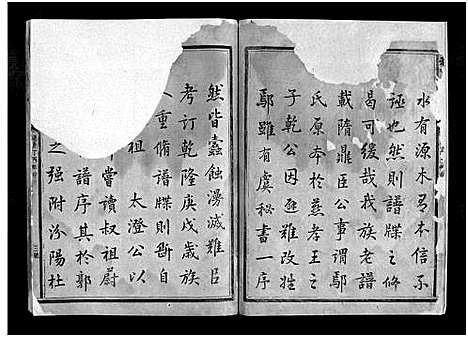 水有源木有本信不
誣也然則譜牒之修
曷可緩哉我族老譜
載隋鼎臣公事謂鄢
氏原本於燕孝王之
子乾公因避難改姓
鄢雖有虞秘書一序
然皆蠹蝕漫滅難以
考訂乾隆庚戌歲族
人重脩譜牒則斷自
祖太澄公以
嘗讀叔祖蔚
譜序其於郭
之强附汾陽杜